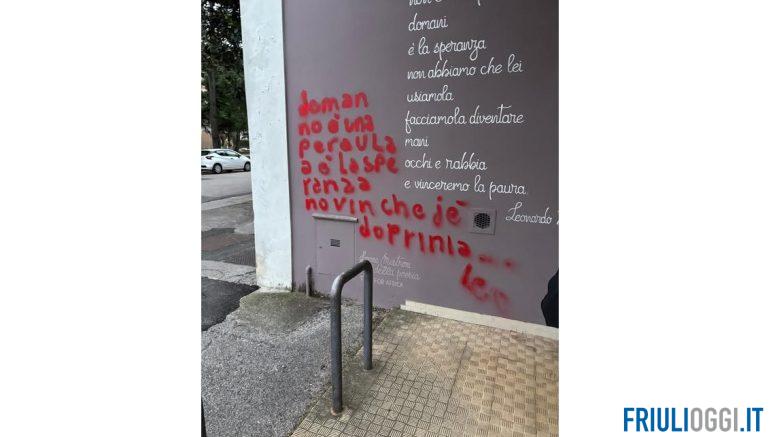 domani
è la speranza
non abbiamo che lei
usiamola
facciamola diventare
mani
occhi e rabbia
e vinceremo la paura.
Leonardo
doman
no è una
peraula
a è la spe
ranza
no vin che jè
doprinla...
della poesia
FOR AFRICA
FRIULIOGGI.IT